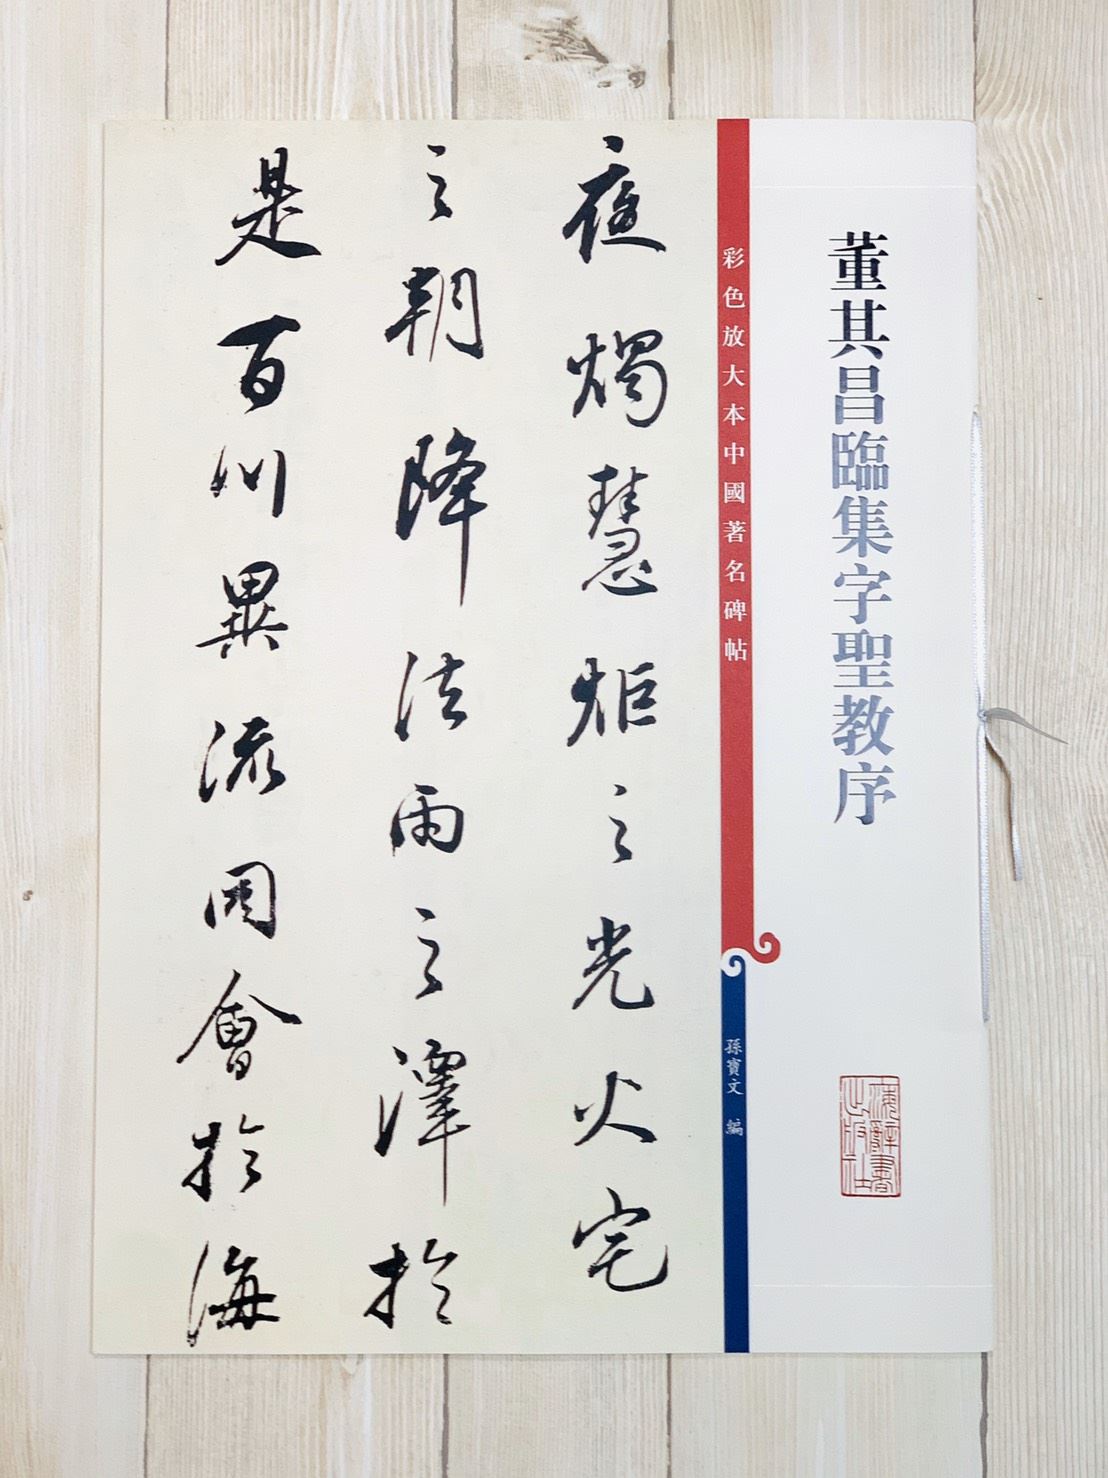 董其昌臨集字聖教序
彩色放大本中國著名碑帖
孫寶文 編
海辭書
出版社
夜燭慧炬之光火宅
之朝降法雨之澤於
是百川異流同會於海